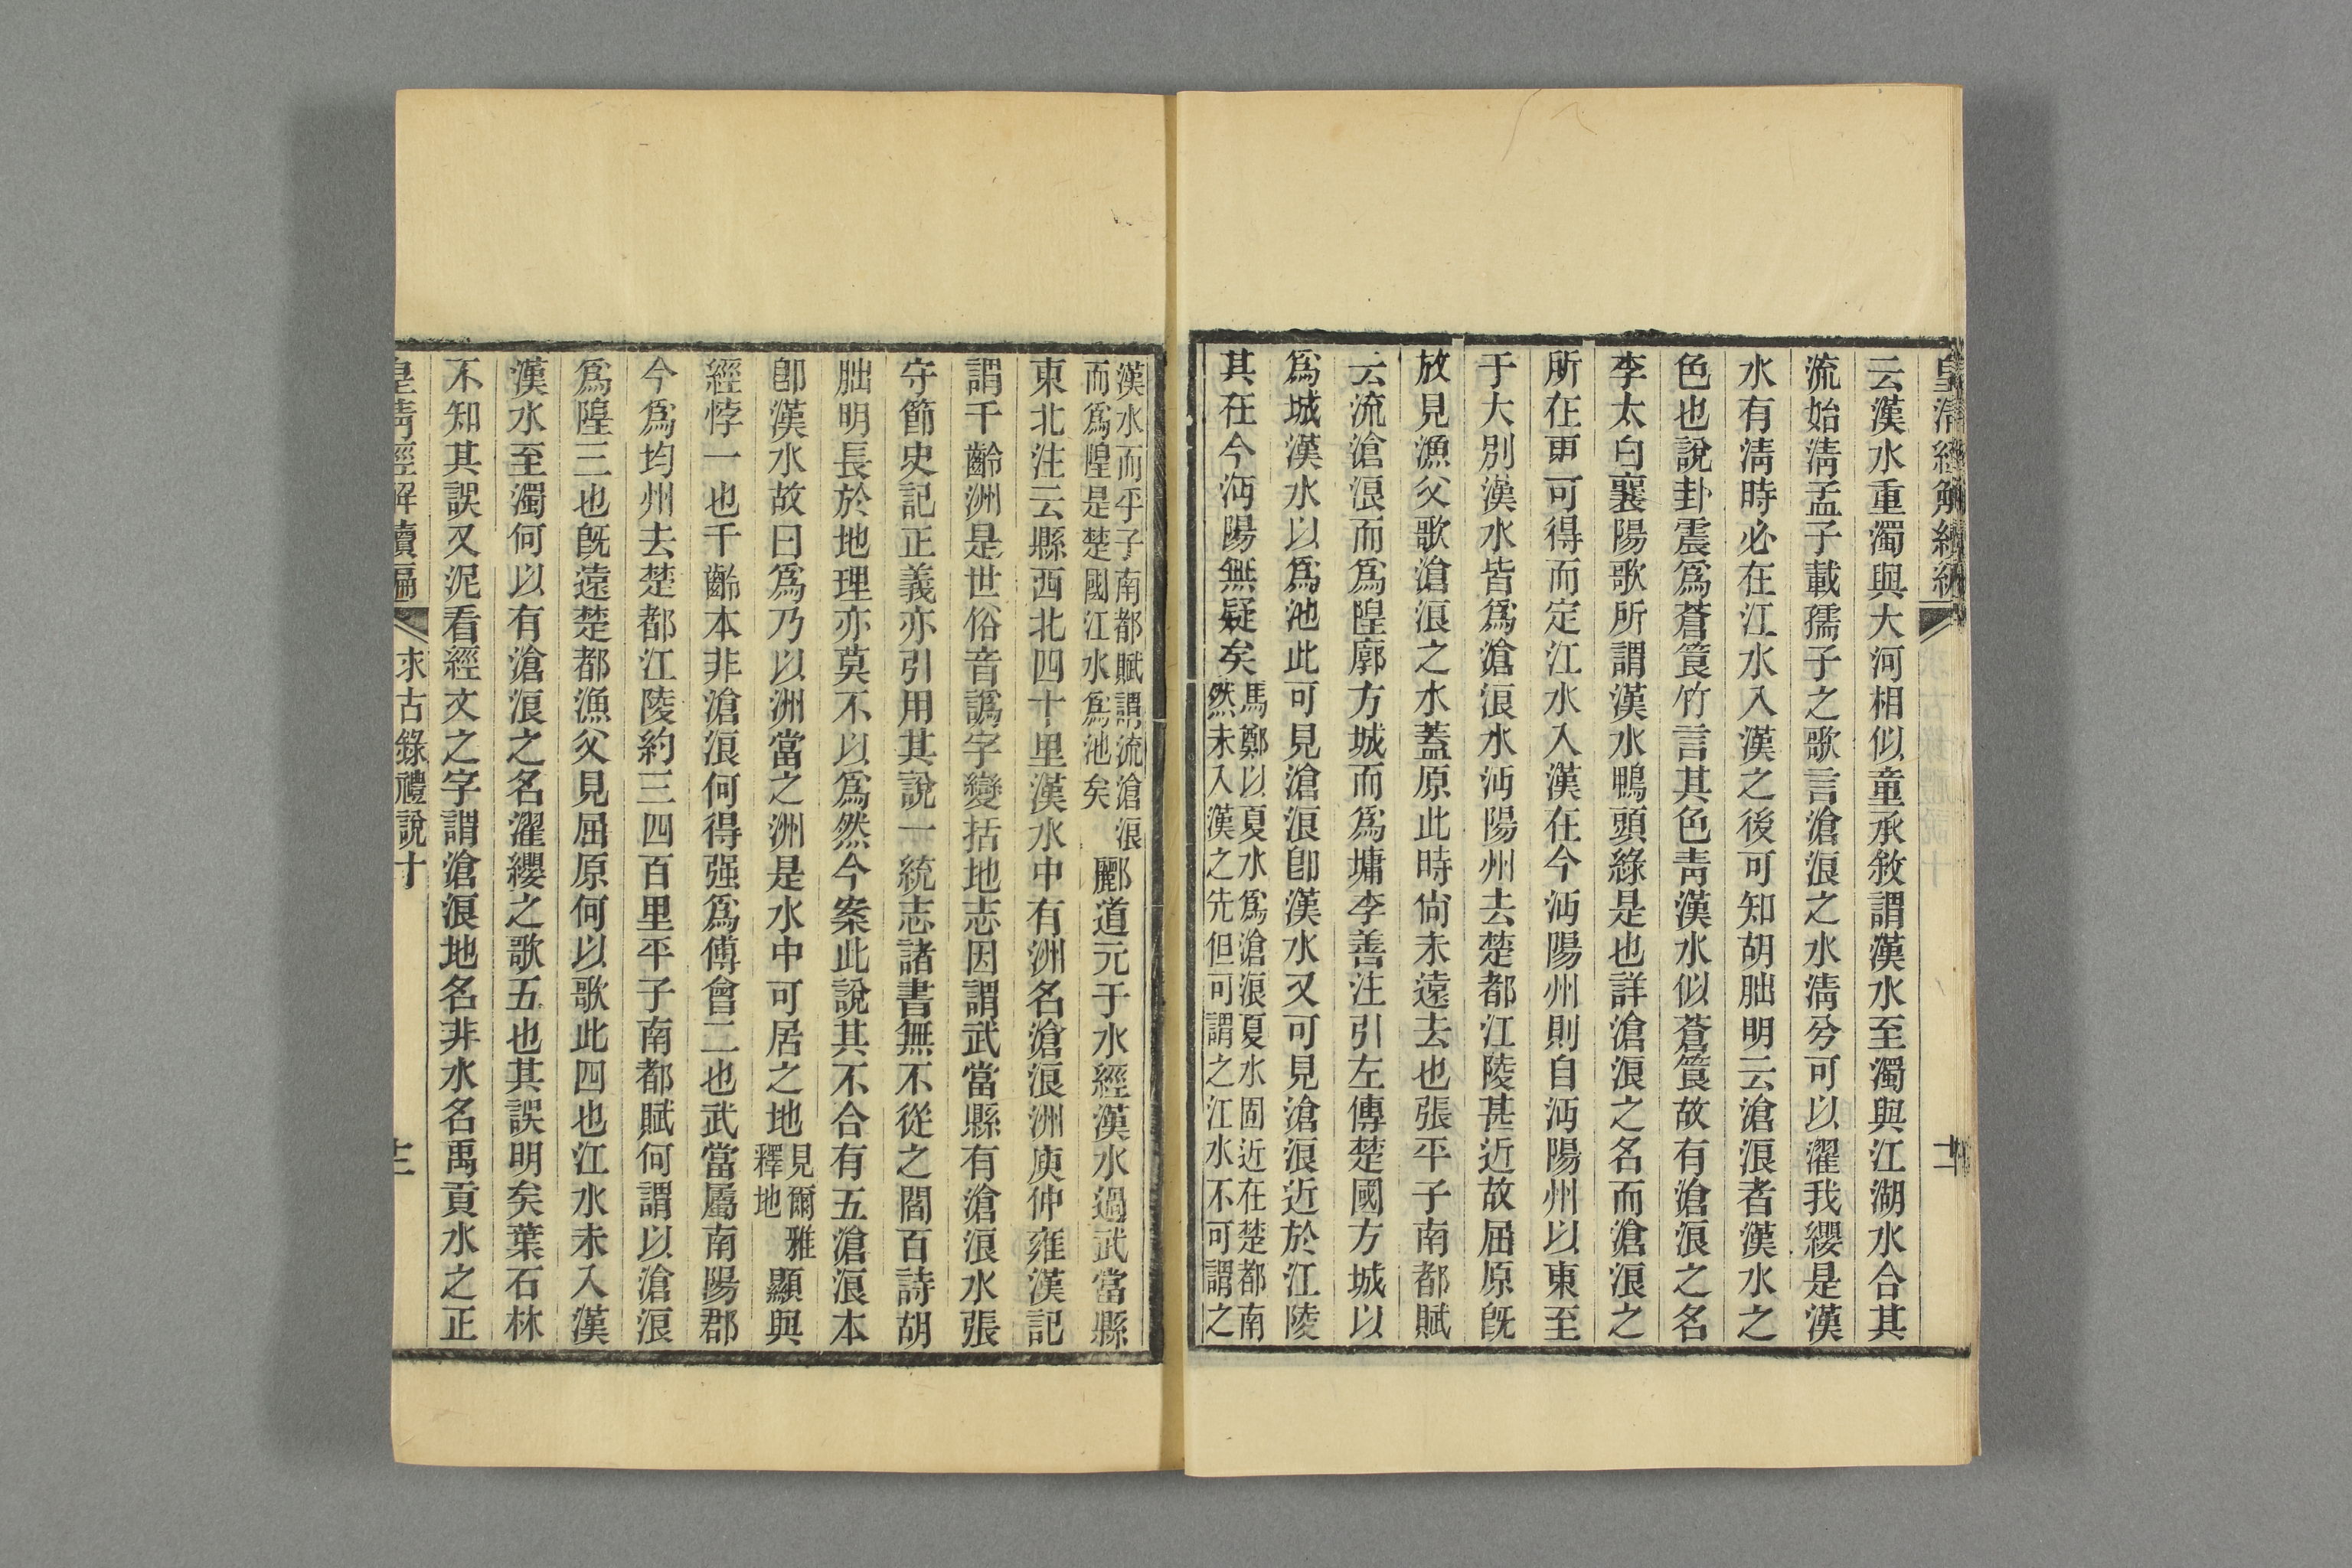 皇清經解續編
云漢水重濁與大河相似童承敘謂漢水至濁與江湖水合其
流始淸孟子載孺子之歌言滄浪之水淸兮可以濯我纓是漢
水有淸時必在江水入漢之後可知胡朏明云滄浪者漢水之
色也說卦震爲蒼筤竹言其色靑漢水似蒼筤故有滄浪之名
李太白襄陽歌所謂漢水鴨頭綠是也詳滄浪之名而滄浪之
所在更可得而定江水入漢在今沔陽州則自沔陽州以東至
于大別漢水皆爲滄浪水沔陽州去楚都江陵甚近故屈原旣
放見漁父歌滄浪之水蓋原此時尙未遠去也張平子南都賦
云流滄浪而爲隍廓方城而爲墉李善注引左傳楚國方城以
爲城漢水以爲池此可見滄浪卽漢水又可見滄浪近於江陵
其在今沔陽無疑矣馬鄭以夏水爲滄浪夏水固近在楚都南
然未入漢之先但可謂之江水不可謂之
漢水而平子南都賦謂流滄浪
而爲隍是楚國江水爲池矣酈道元于水經漢水過武當縣
東北注云縣西北四十里漢水中有洲名滄浪洲庾仲雍漢記
謂千齡洲是世俗音譌字變括地志因謂武當縣有滄浪水張
守節史記正義亦引用其說一統志諸書無不從之閻百詩胡
朏明長於地理亦莫不以爲然今案此說其不合有五滄浪本
卽漢水故曰爲乃以洲當之洲是水中可居之地見爾雅釋地顯與
經悖一也千齡本非滄浪何得强爲傅會二也武當屬南陽郡
今爲均州去楚都江陵約三四百里平子南都賦何謂以滄浪
爲隍三也旣遠楚都漁父見屈原何以歌此四也江水未入漢
漢水至濁何以有滄浪之名濯纓之歌五也其誤明矣葉石林
不知其誤又泥看經文之字謂滄浪地名非水名禹貢水之正
皇淸經解續編 求古錄禮說十 十二